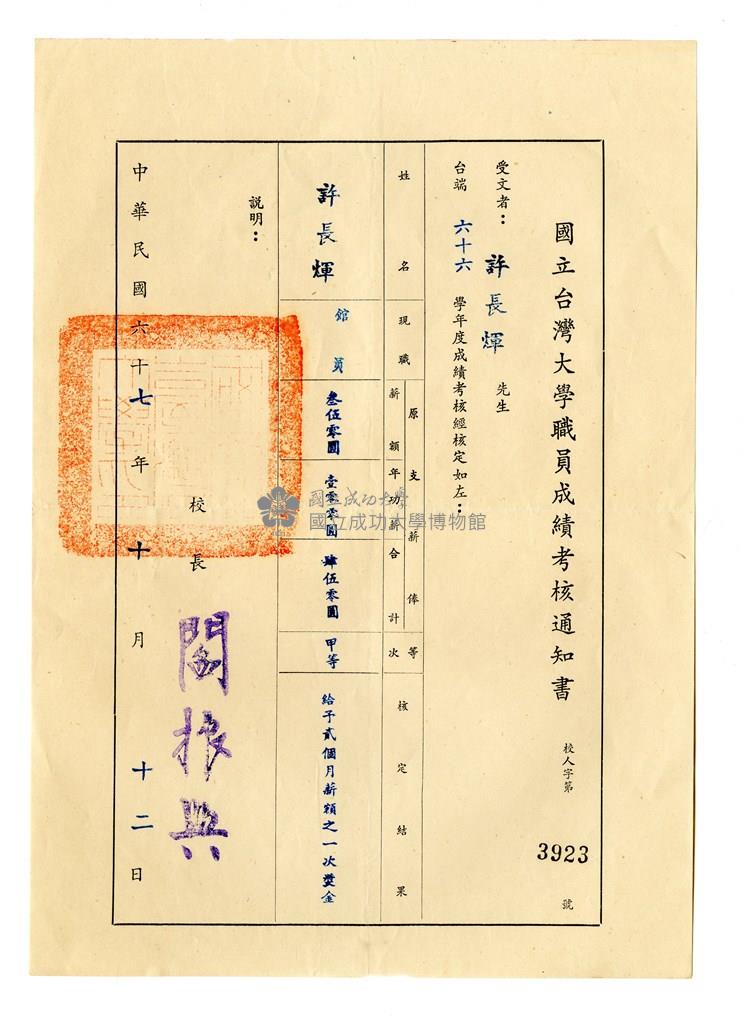 國立台灣大學職員成績考核通知書
校人字第 3923 號
受文者： 許長煇 先生
台端 六十六 學年度成績考核經核定如左：
姓名
現職
原支薪俸
薪額
年功薪
合計
等次
核定結果
許長煇
館員
叁伍零圓
壹零零圓
肆伍零圓
甲等
給予貳個月薪額之一次獎金
說明：
校長 閻振興
中華民國六十七年十月十二日
國立成功大學
國立成功大學博物館